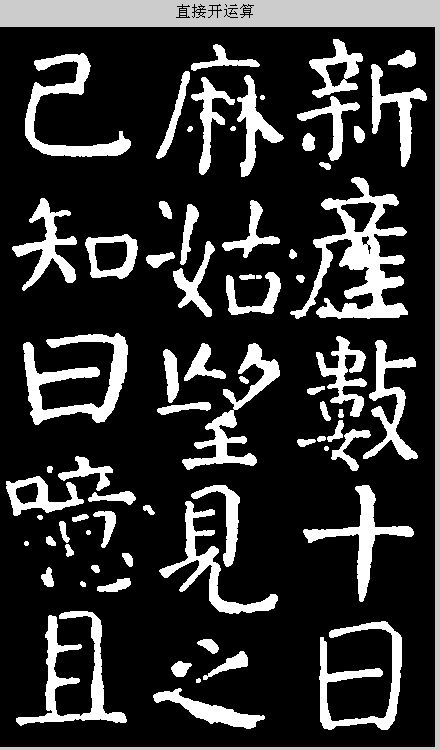 直接开运算
新產數十日
麻姑望見之
已知曰噫且